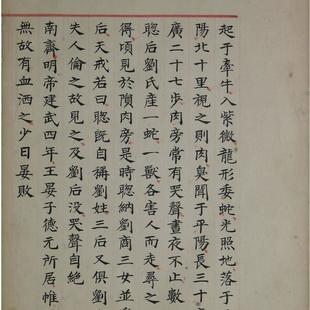 起于牽牛入紫微龍形委蛇光照地落于
陽北十里視之則肉臭聞于平陽長三十
廣二十七步肉旁常有哭聲晝夜不止數
聦后劉氏産一蛇一獸各害人而走尋之
得頃見於隕肉旁是時聦納劉商三女並
后天戒若曰聦旣自稱劉姓三后又俱劉
夫人倫之故見之及劉后没哭聲自絶
南齊明帝建武四年王晏子德元所居帷
無故有血洒之少日晏敗